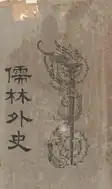 儒林外史